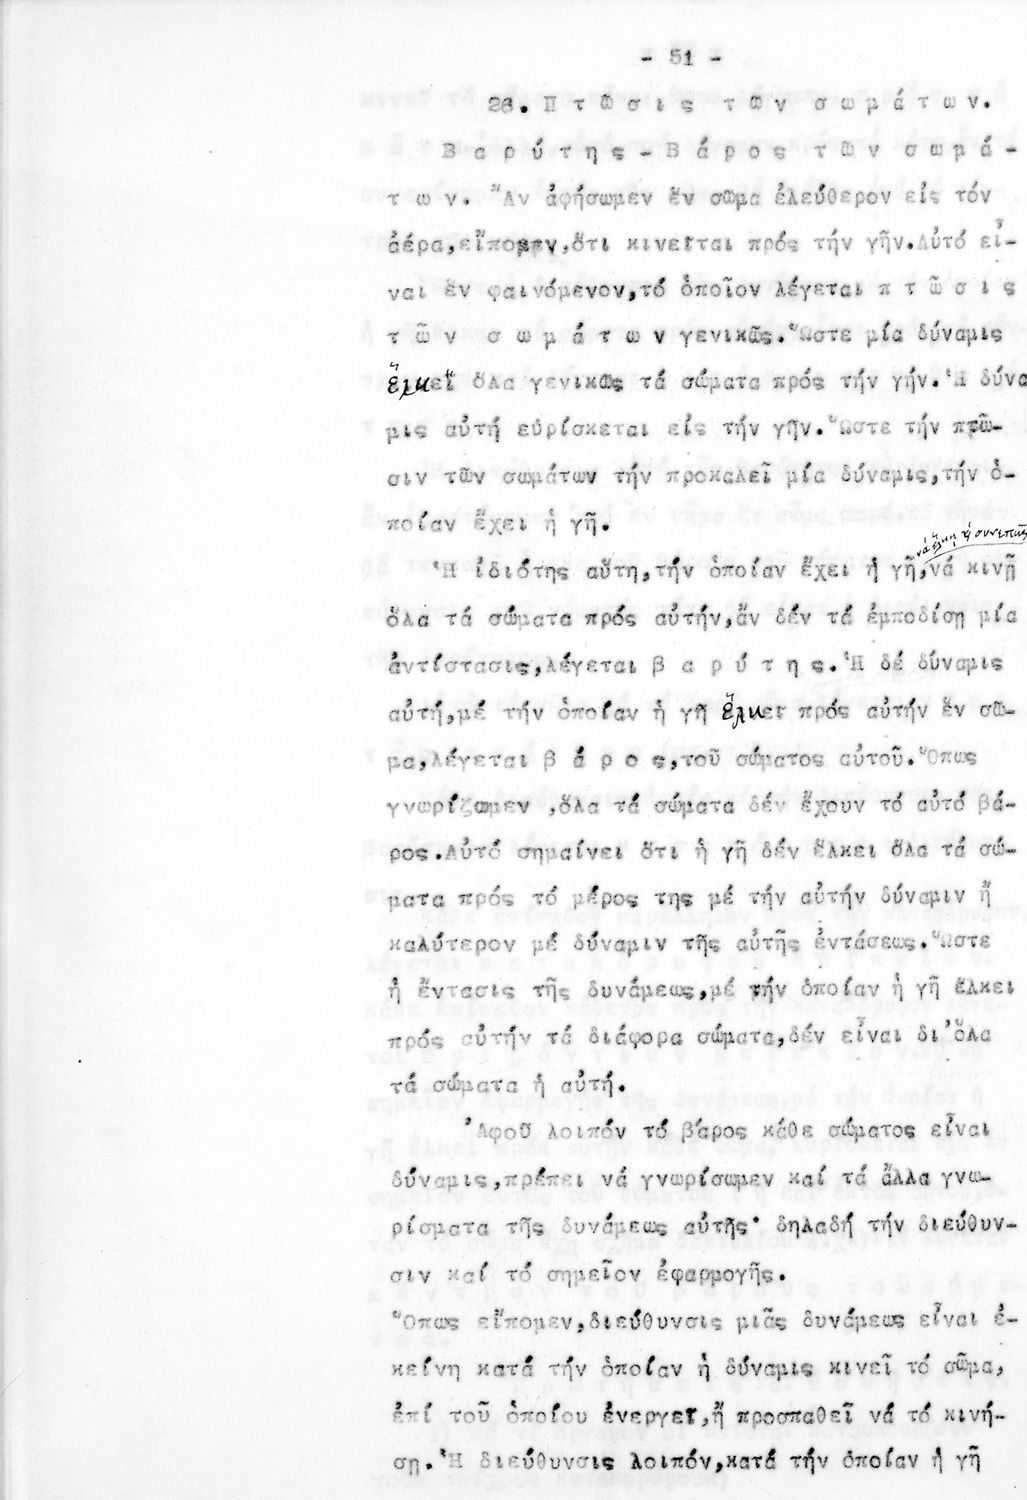 - 51 -
26. Π τ ῶ σ ι ς  τ ῶ ν  σ ω μ ά τ ω ν.
Β α ρ ύ τ η ς - Β ά ρ ο ς τ ῶ ν σ ω μ ά -
τ ω ν. Ἄν ἀφήσωμεν ἕν σῶμα ἐλεύθερον εἰς τόν
ἀέρα,εἴπομεν,ὅτι κινεῖται πρός τήν γῆν.Αὐτό εἶ-
ναι ἕν φαινόμενον,τό ὁποῖον λέγεται π τ ῶ σ ι ς
τ ῶ ν  σ ω μ ά τ ω ν γενικῶς.Ὥστε μία δύναμις
ἕλκει ὅλα γενικῶς τά σώματα πρός τήν γήν.Ἡ δύνα
μις αὐτή εὑρίσκεται εἰς τήν γῆν.Ὥστε τήν πτῶ-
σιν τῶν σωμάτων τήν προκαλεῖ μία δύναμις,τήν ὁ-
ποίαν ἔχει ἡ γῆ.
νά ἕλκῃ ἤ συνεπῶς
Ἡ ἰδιότης αὕτη,τήν ὁποίαν ἔχει ἡ γῆ,νά κινῇ
ὅλα τά σώματα πρός αὐτήν,ἄν δέν τά ἐμποδίσῃ μία
ἀντίστασις,λέγεται β α ρ ύ τ η ς.Ἡ δέ δύναμις
αὐτή,μέ τήν ὁποίαν ἡ γῆ ἕλκει πρός αὐτήν ἕν σῶ-
μα,λέγεται β ά ρ ο ς,τοῦ σώματος αὐτοῦ.Ὅπως
γνωρίζωμεν ,ὅλα τά σώματα δέν ἔχουν τό αὐτό βά-
ρος.Αὐτό σημαίνει ὅτι ἡ γῆ δέν ἕλκει ὅλα τά σώ-
ματα πρός τό μέρος της μέ τήν αὐτήν δύναμιν ἤ
καλύτερον μέ δύναμιν τῆς αὐτῆς ἐντάσεως.Ὥστε
ἡ ἔντασις τῆς δυνάμεως,μέ τήν ὁποίαν ἡ γῆ ἕλκει
πρός αὐτήν τά διάφορα σώματα,δέν εἶναι δι'ὅλα
τά σώματα ἡ αὐτή.
Ἀφοῦ λοιπόν τό βάρος κάθε σώματος εἶναι
δύναμις,πρέπει νά γνωρίσωμεν καί τά ἄλλα γνω-
ρίσματα τῆς δυνάμεως αὐτῆς· δηλαδή τήν διεύθυν-
σιν καί τό σημεῖον ἐφαρμογῆς.
Ὅπως εἴπομεν,διεύθυνσις μιᾶς δυνάμεως εἶναι ἐ-
κείνη κατά τήν ὁποίαν ἡ δύναμις κινεῖ τό σῶμα,
ἐπί τοῦ ὁποίου ἐνεργεῖ,ἤ προσπαθεῖ νά τό κινή-
σῃ.Ἡ διεύθυνσις λοιπόν,κατά τήν ὁποίαν ἡ γῆ